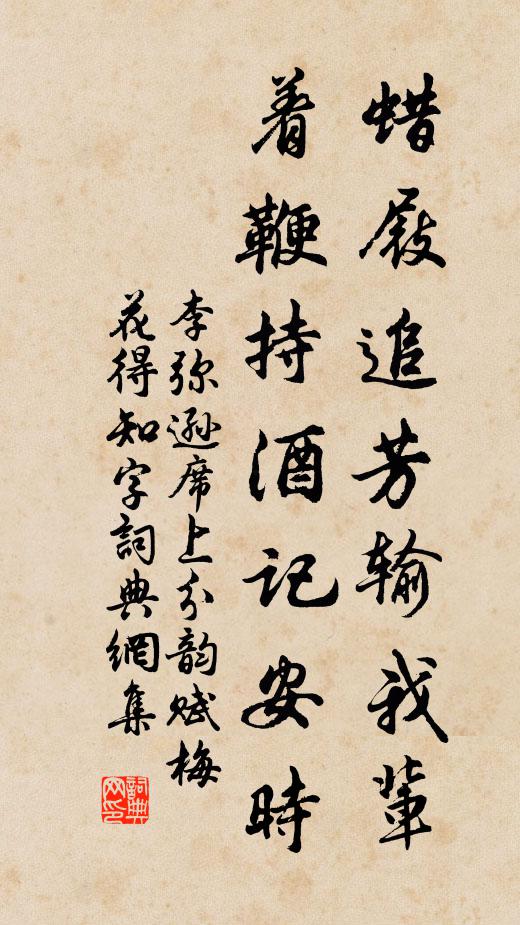 蜡屐追芳输我輩
着鞭持酒記安時
李弥遜席上分韵赋梅
花得知字詞典網集
詞典网印